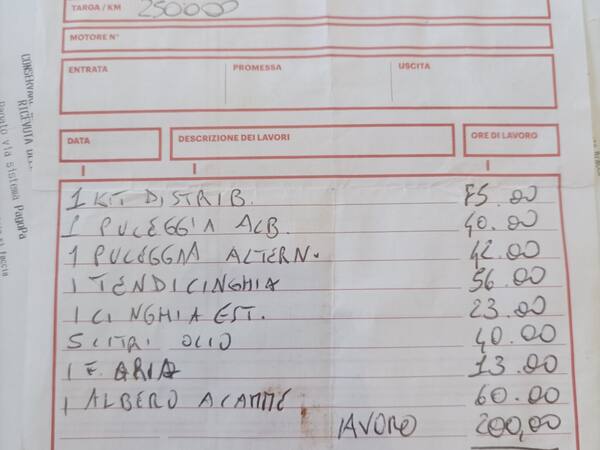 TARGA / KM 250000
MOTORE N°
ENTRATA PROMESSA USCITA
DATA DESCRIZIONE DEI LAVORI ORE DI LAVORO
1 KIT DISTRIB. 75.00
1 PULEGGIA ALB. 40.00
1 PULEGGIA ALTERN. 42.00
1 TENDICINGHIA 56.00
1 CINGHIA EST. 23.00
5 LITRI OLIO 40.00
1 F. ARIA 13.00
1 ALBERO A CAMME 60.00
LAVORO 200,00
Pagato via sistema PagoPa